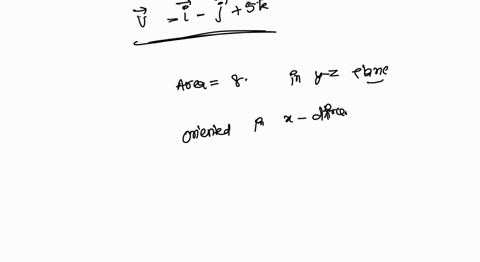 v⃗ = i⃗ - j⃗ + 5k
Area = 8. in y-z plane
oriented in x-direc